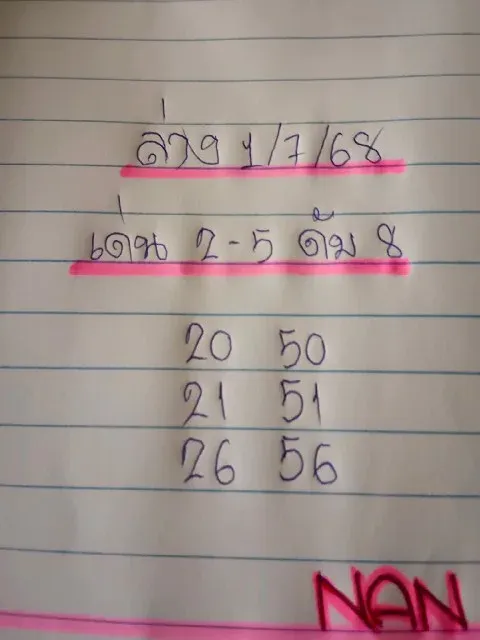 ล่าง 1/7/68
เด่น 2-5 ดับ 8
20 50
21 51
26 56
NAN